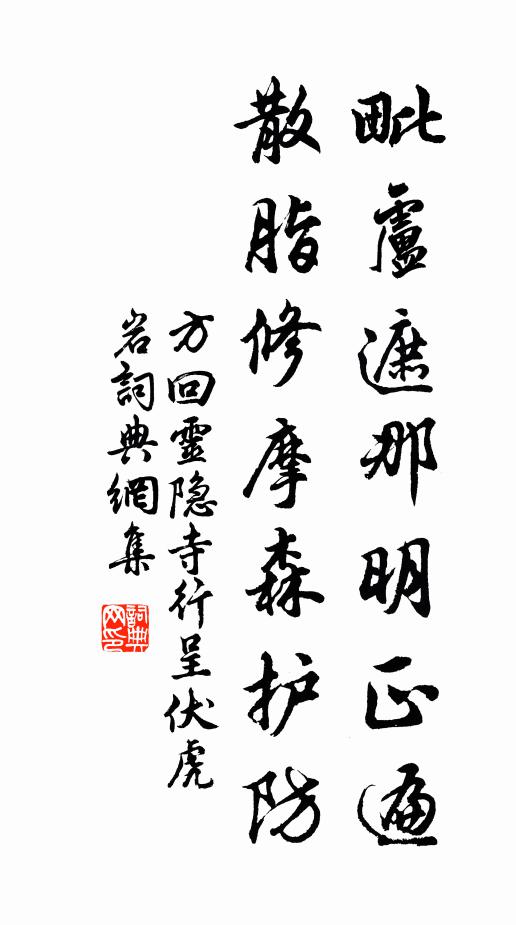 毗盧遮那明正遍
散脂修摩森护防
方回靈隐寺行呈伏虎
岩詞典網集
詞典网印